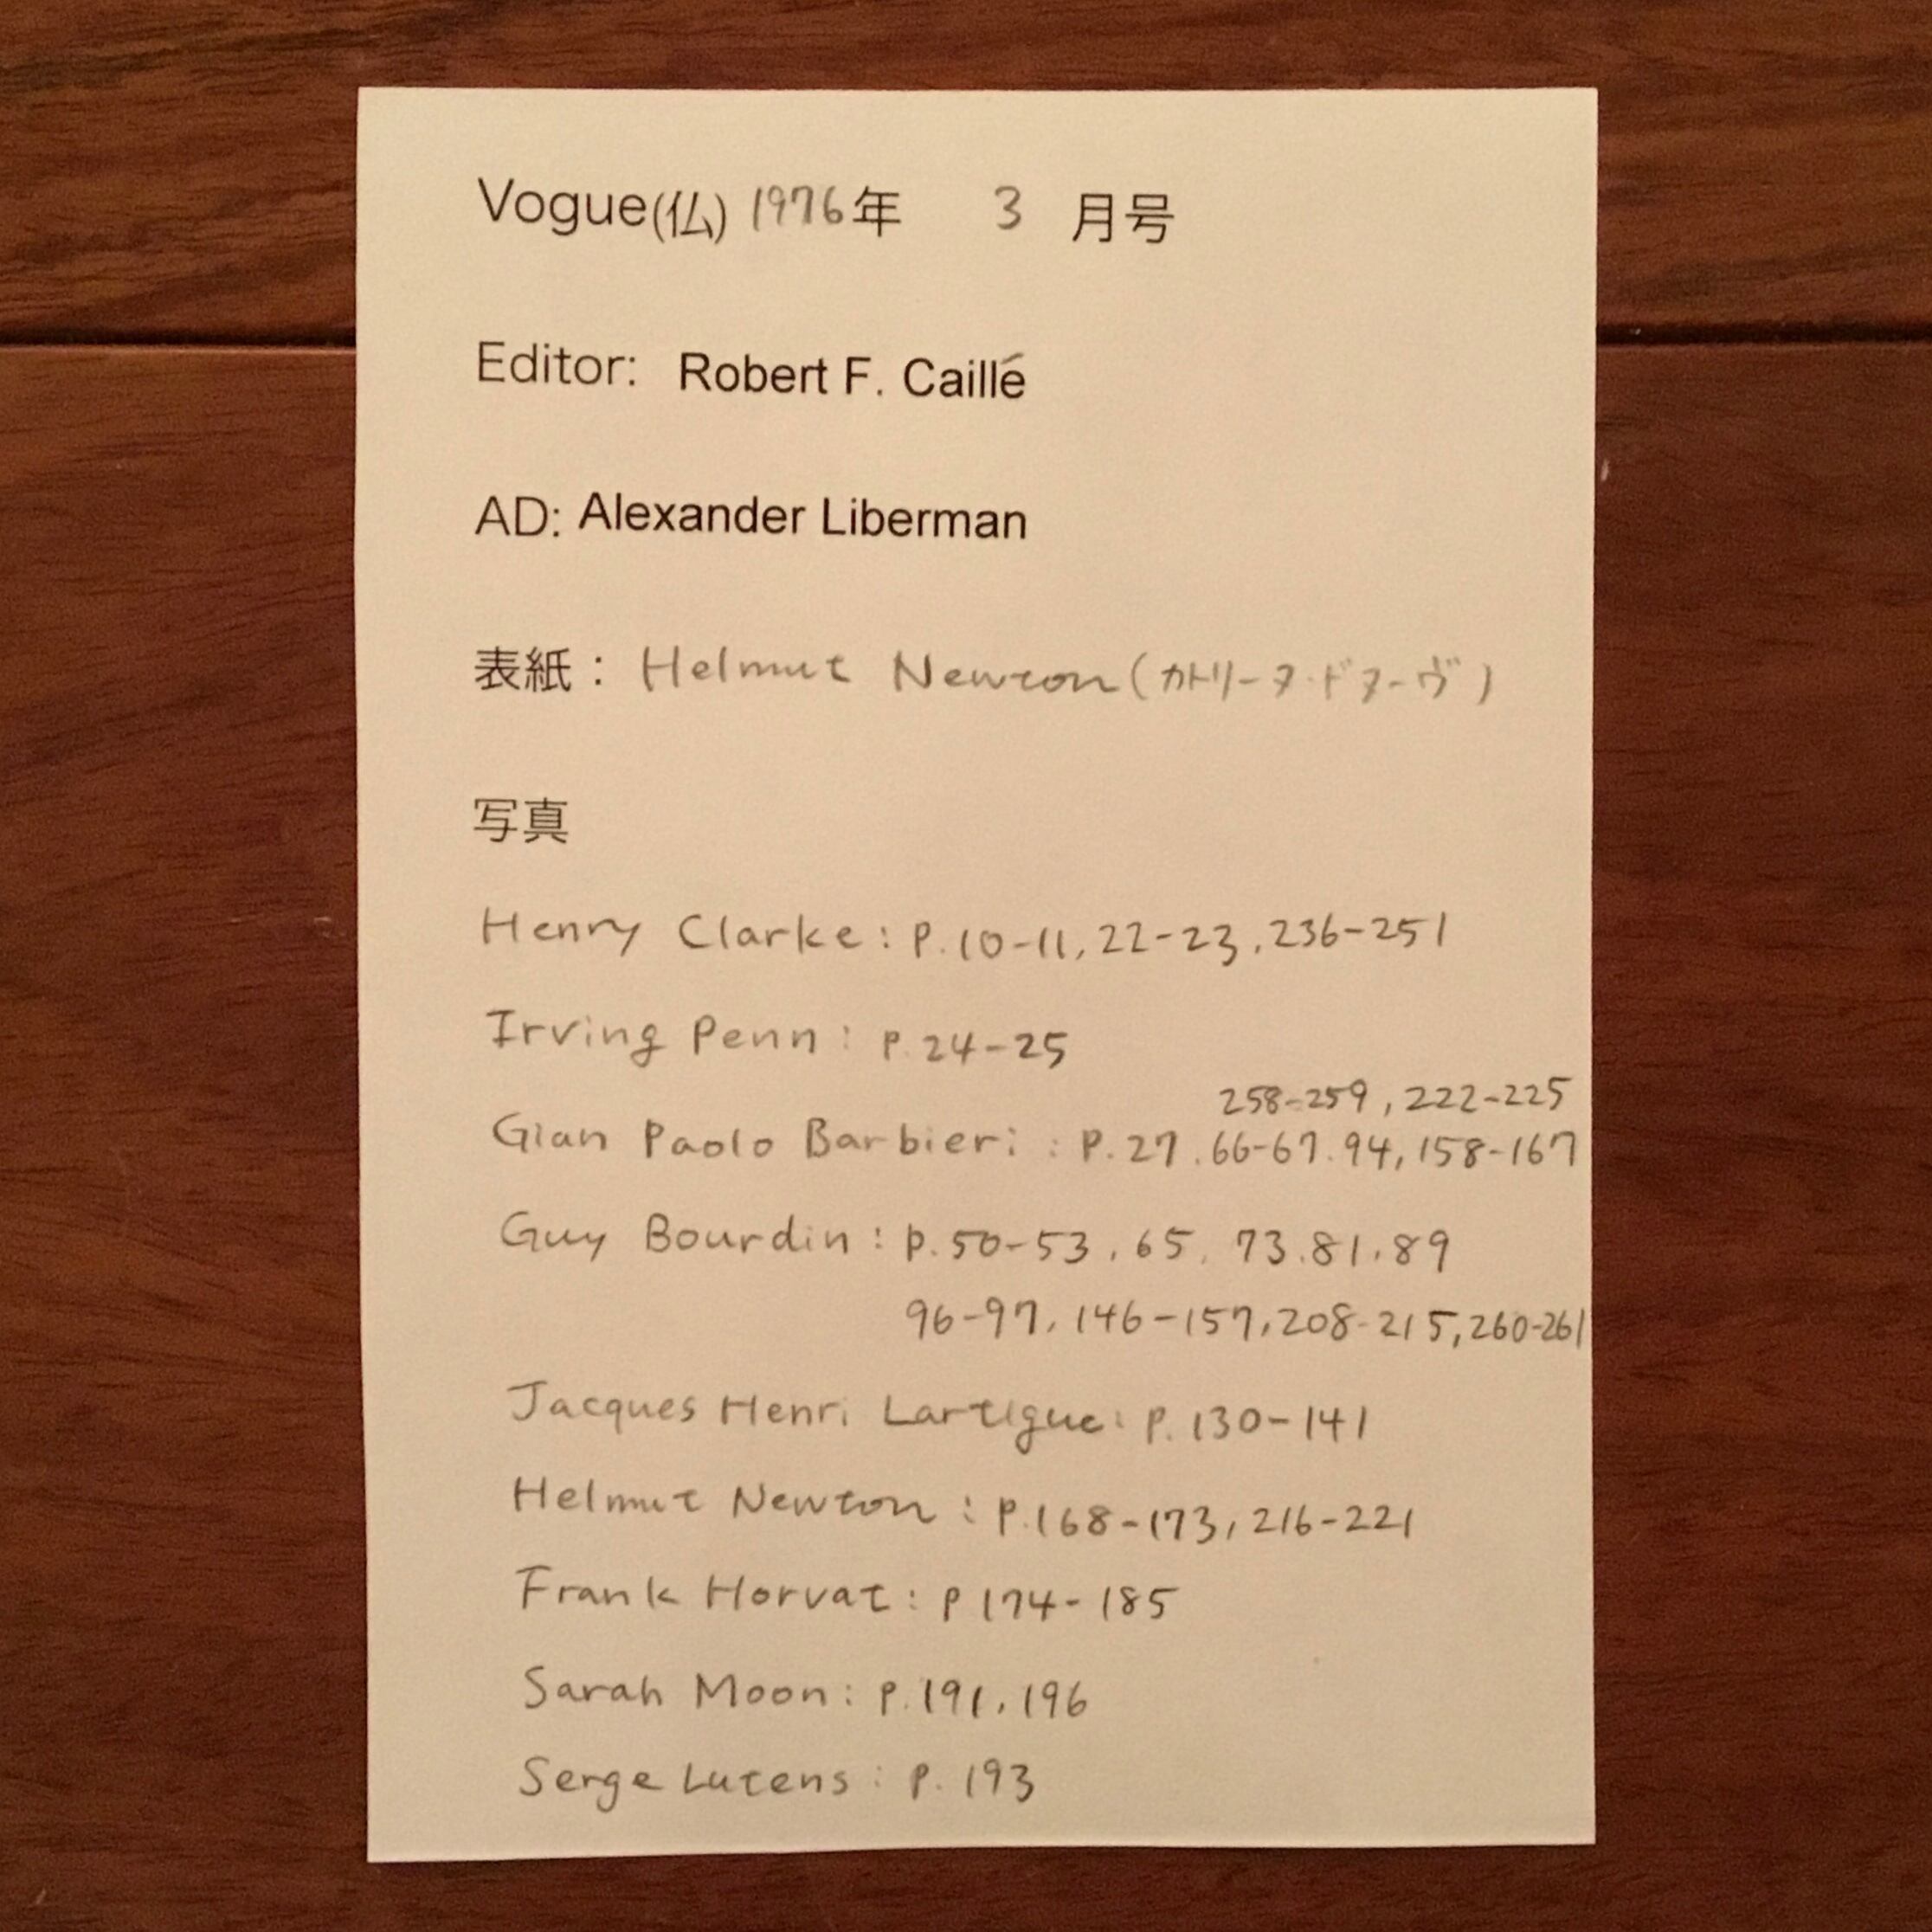 Vogue(仏) 1976年 3 月号
Editor: Robert F. Caillé
AD: Alexander Liberman
表紙： Helmut Newton (カトリーヌ・ドヌーヴ)
写真
Henry Clarke: p.10-11, 22-23, 236-251
Irving Penn: p.24-25
258-259, 222-225
Gian Paolo Barbieri: p.27. 66-67. 94, 158-167
Guy Bourdin: p.50-53, 65, 73. 81. 89
96-97, 146-157, 208-215, 260-261
Jacques Henri Lartigue: p.130-141
Helmut Newton: p.168-173, 216-221
Frank Horvat: p174-185
Sarah Moon: p.191, 196
Serge Lutens: p.193